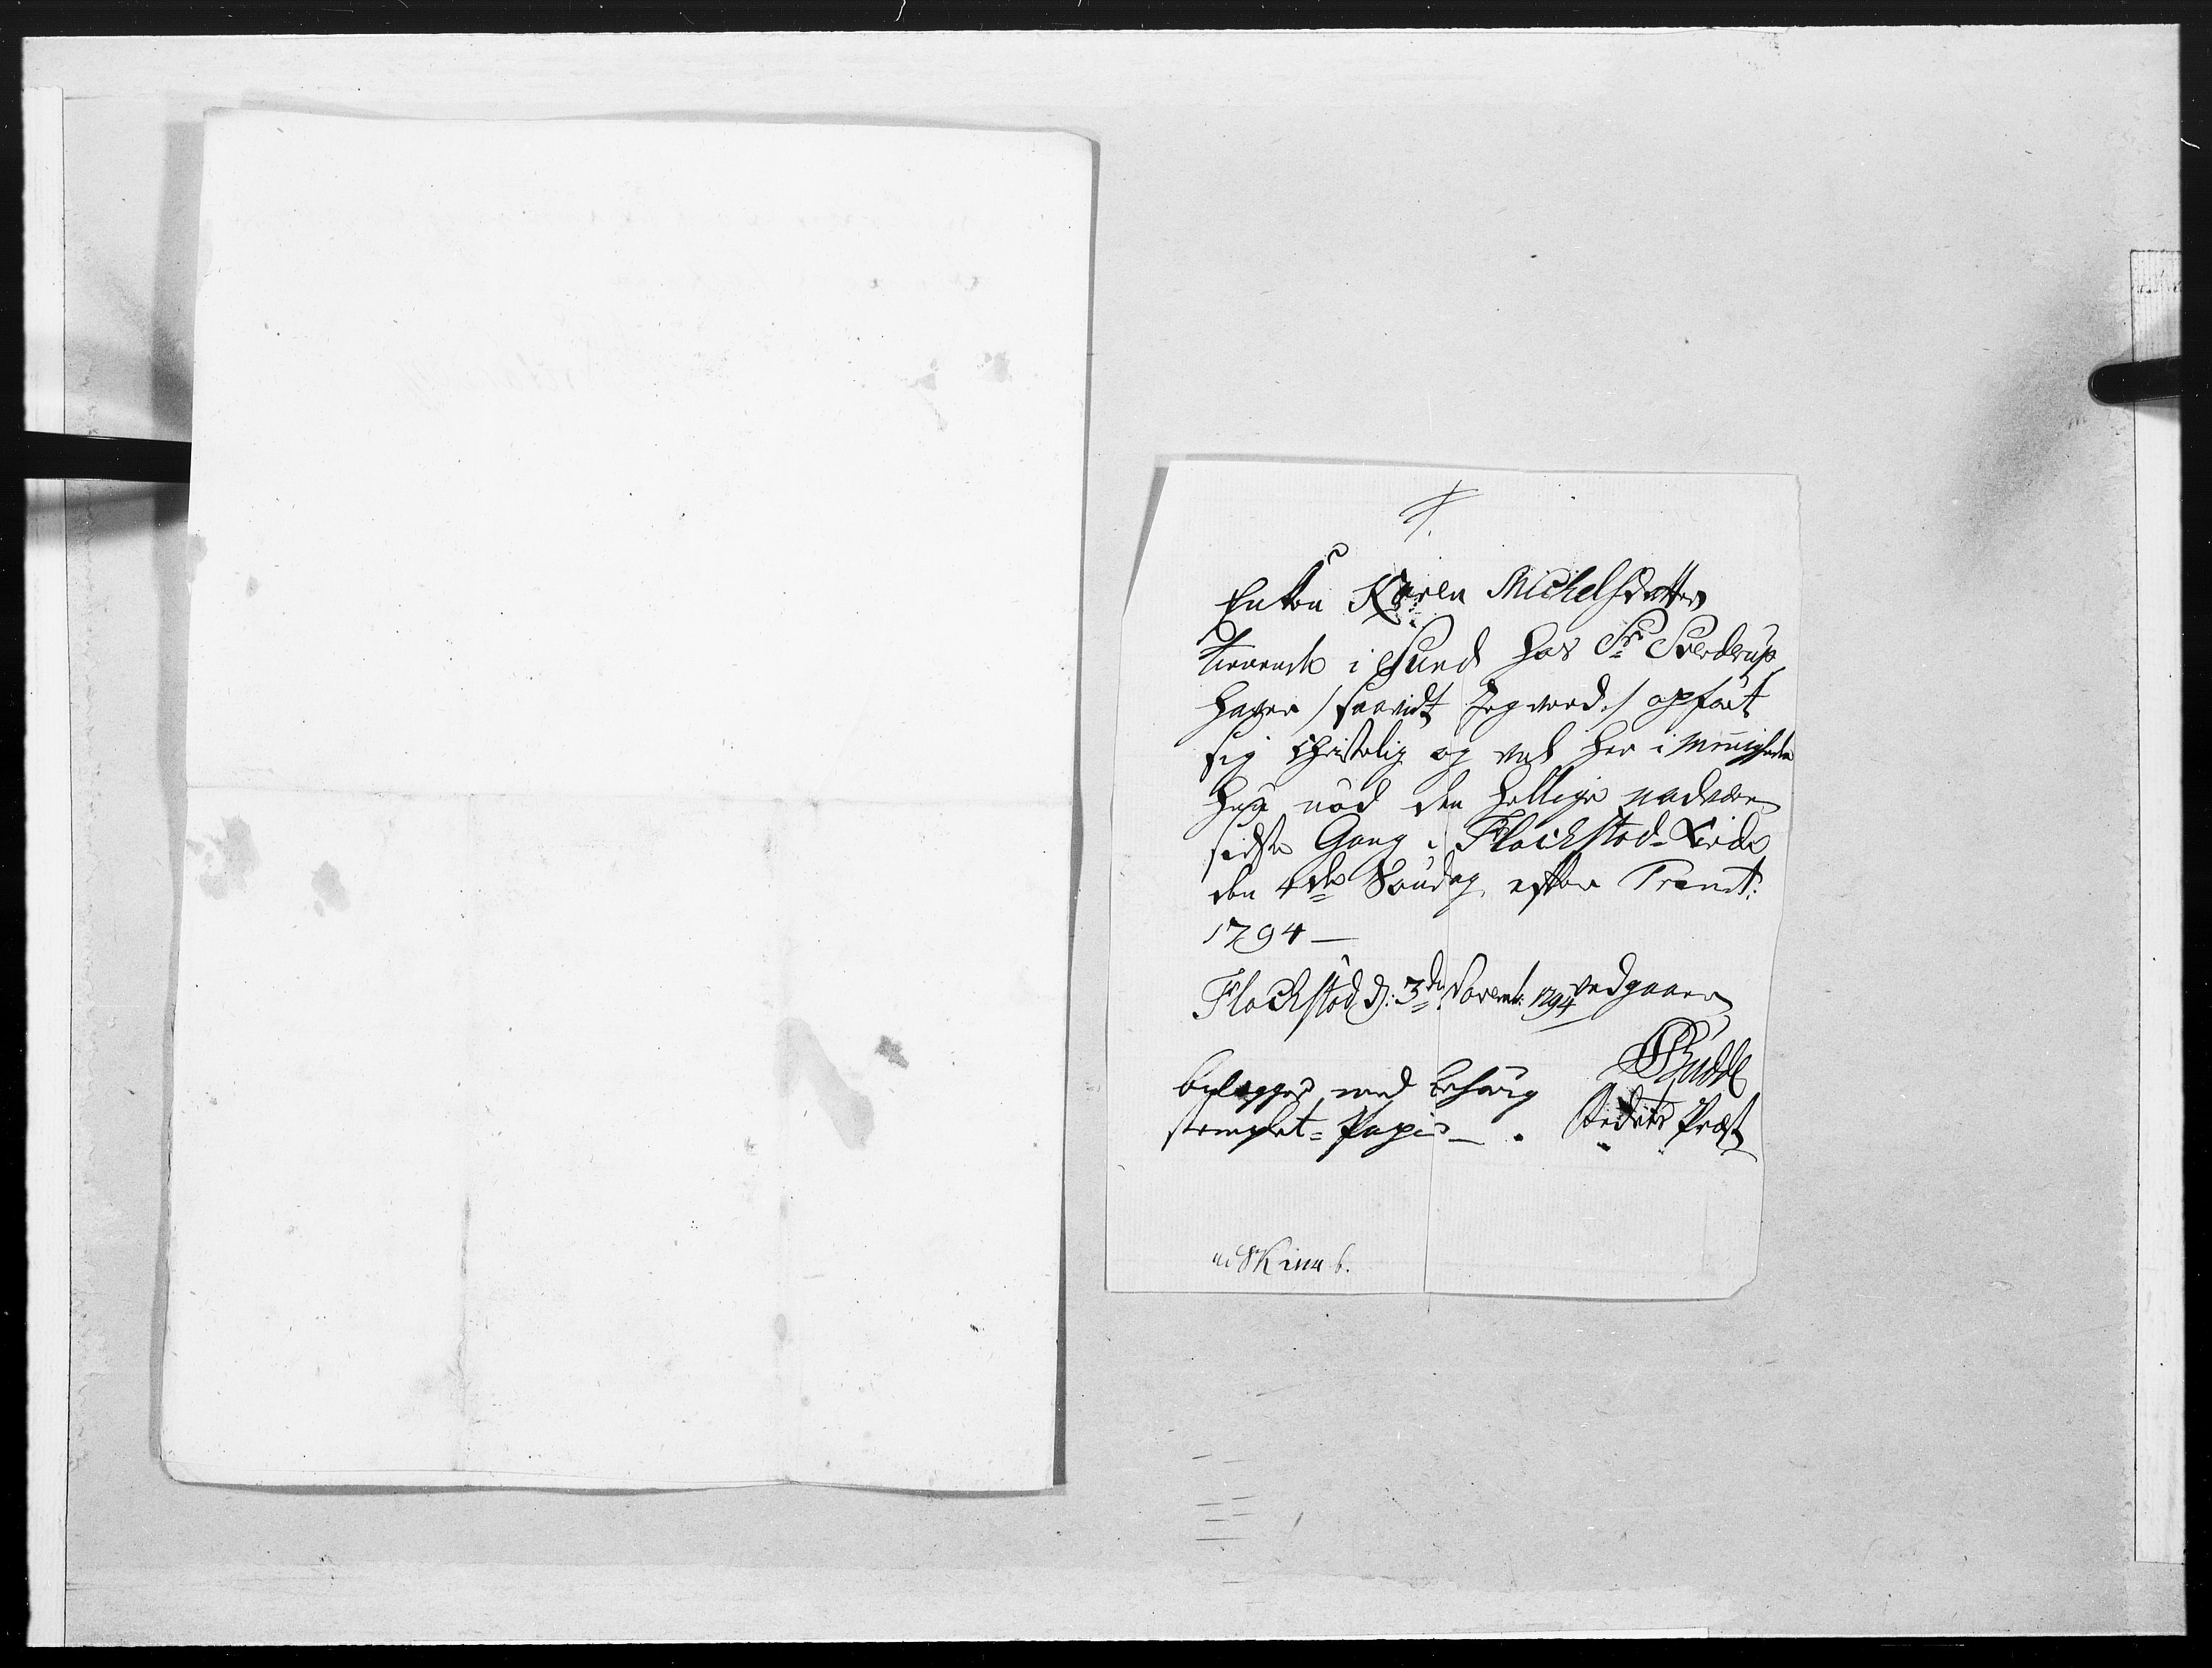 Enken Karen Michelsdatter
tienende i Sund hos Sr Sverdrup
haver /: saavidt Jeg veed :/ opført
sig Christelig og vel her i Menigheden
hun nød den hellige nadvere
sidste Gang i Flachstad-Kirke
den 4de Søndag efter Trenit:
1794 —
Flachstad d: 3de Novemb: 1794 vedgaaer
Budde
Stedets Præst
belegges med behørig
stemplet-Papir —